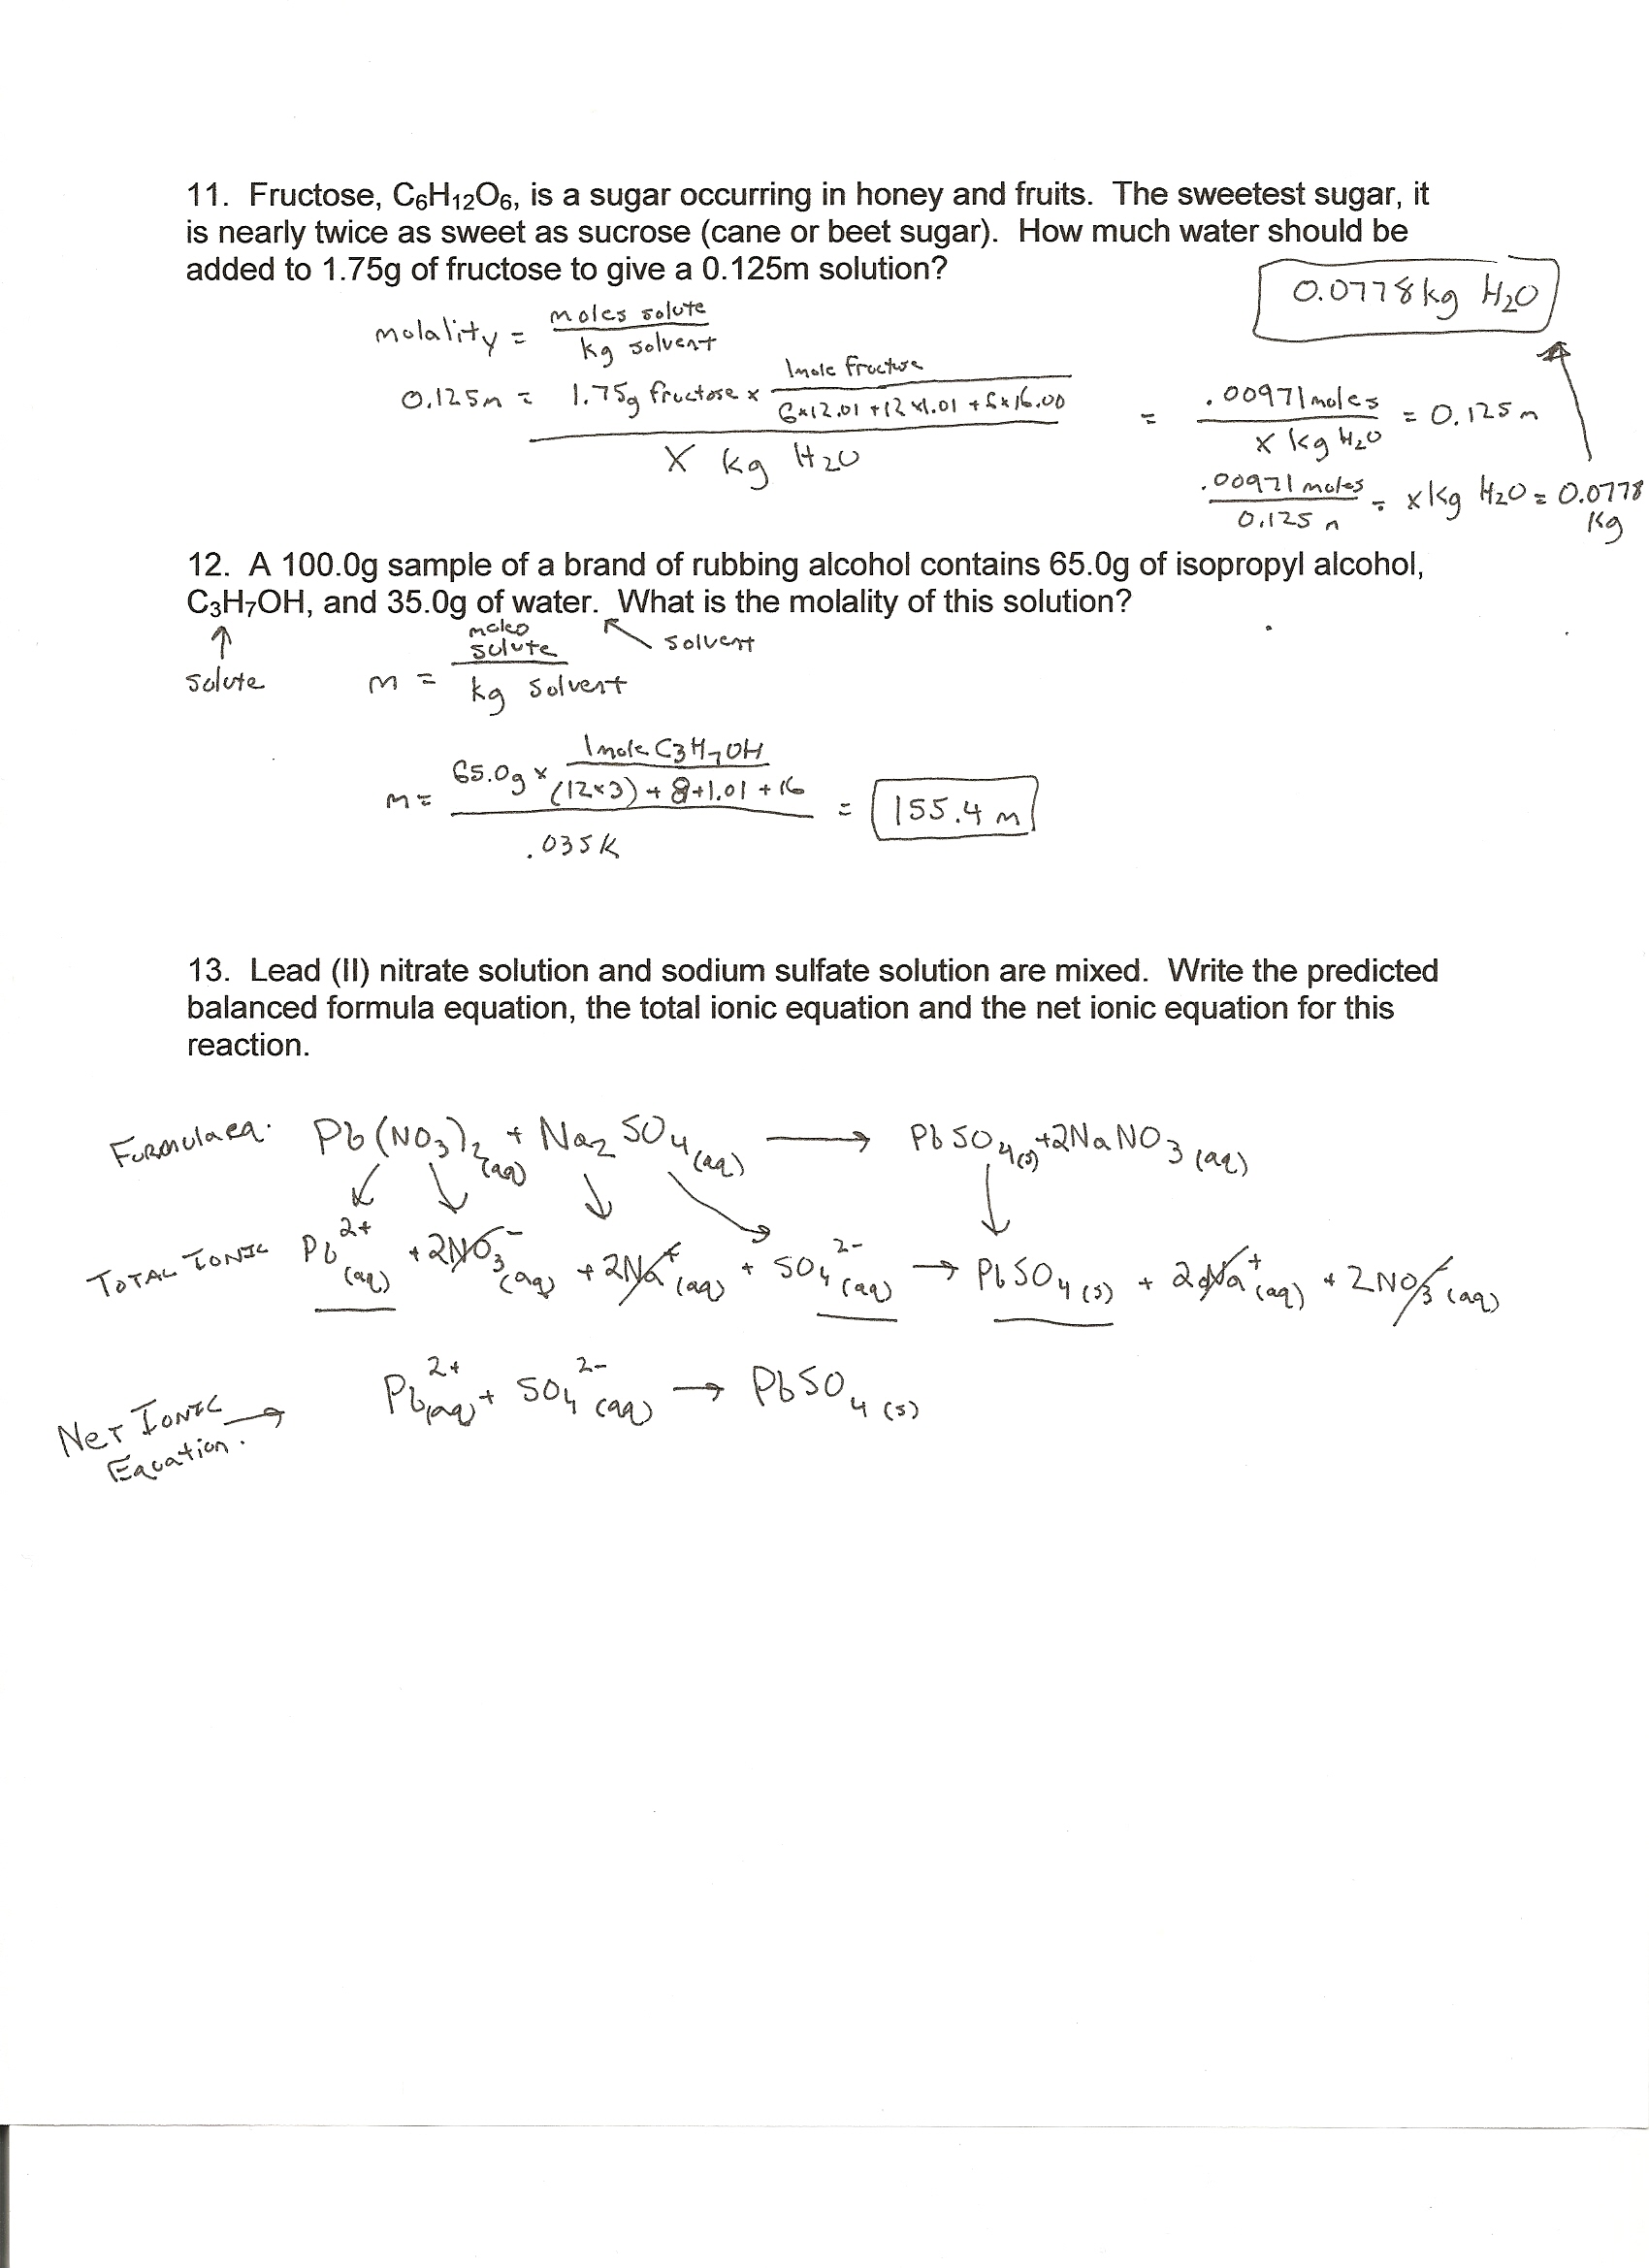 11. Fructose, C6H12O6, is a sugar occurring in honey and fruits. The sweetest sugar, it
is nearly twice as sweet as sucrose (cane or beet sugar). How much water should be
added to 1.75g of fructose to give a 0.125m solution?
0.0778 kg H2O
molality = moles solute / kg solvent
0.125m = 1.75g fructose x 1mole fructose / 6x12.01 + 12x1.01 + 6x16.00
x kg H2O
= .00971 moles / x kg H2O = 0.125m
.00971 moles / 0.125m = x kg H2O = 0.0778
kg
12. A 100.0g sample of a brand of rubbing alcohol contains 65.0g of isopropyl alcohol,
C3H7OH, and 35.0g of water. What is the molality of this solution?
↑ solute
↖ solvent
m = moles solute / kg solvent
m = 65.0g x 1mole C3H7OH / (12x3) + 8+1.01 + 16
.035K
= 155.4 m
13. Lead (II) nitrate solution and sodium sulfate solution are mixed. Write the predicted
balanced formula equation, the total ionic equation and the net ionic equation for this
reaction.
Formula eq. Pb(NO3)2(aq) + Na2SO4(aq) → PbSO4(s) + 2NaNO3(aq)
Total Ionic Pb2+(aq) + 2NO3-(aq) + 2Na+(aq) + SO4 2-(aq) → PbSO4(s) + 2Na+(aq) + 2NO3-(aq)
Net Ionic → Pb2+(aq) + SO4 2-(aq) → PbSO4(s)
Equation.